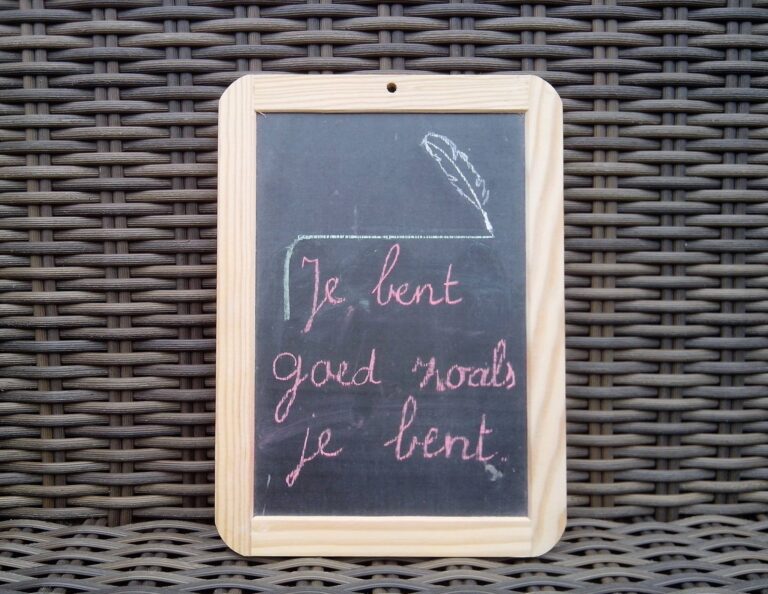 Je bent
goed zoals
je bent..